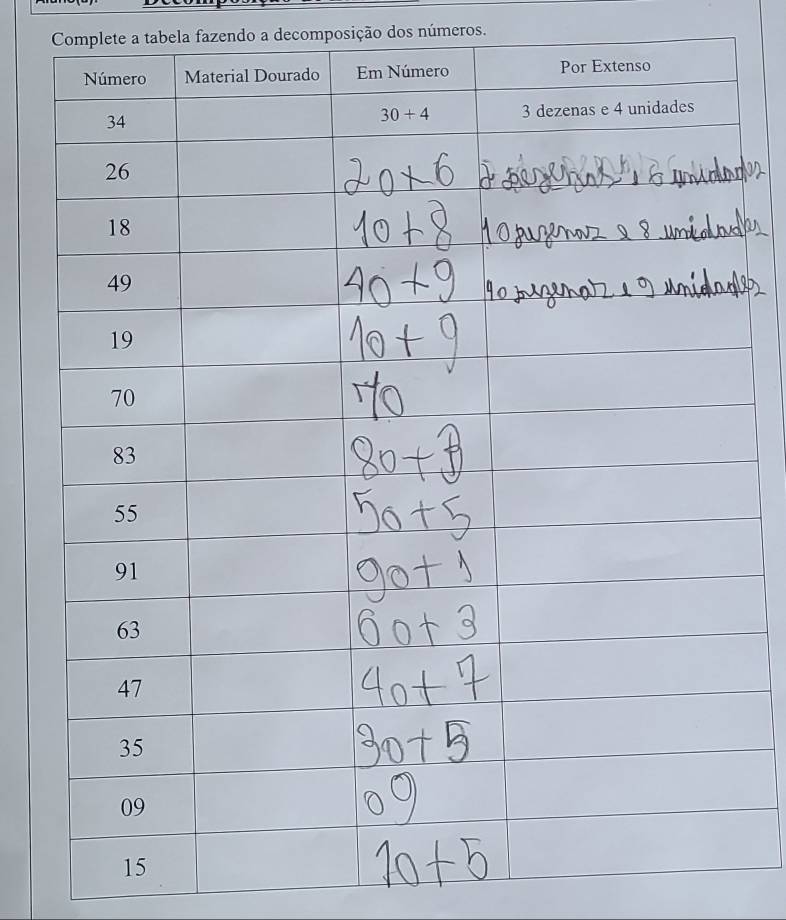 Complete a tabela fazendo a decomposição dos números.
Número Material Dourado Em Número Por Extenso
34 30 + 4 3 dezenas e 4 unidades
26 20+6 6 unidades
18 10+8 10 e 8 unidades
49 40+9 e 9 unidades
19 10+9
70 70
83 80+3
55 50+5
91 90+1
63 60+3
47 40+7
35 30+5
09 09
15 10+5